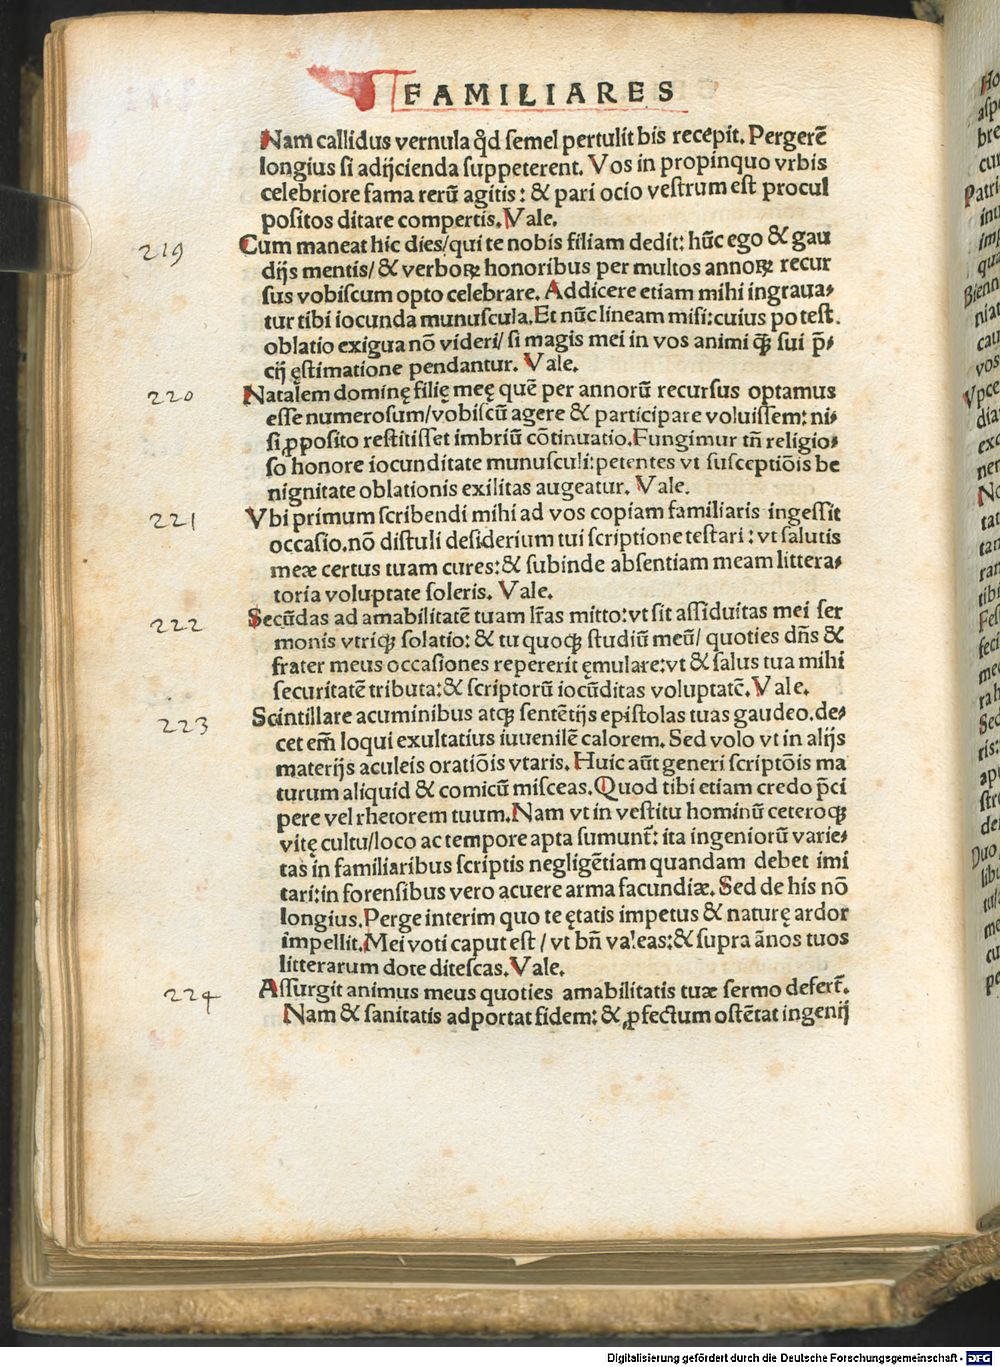 FAMILIARES
Nam callidus vernula ꝙd ſemel pertulit bis recepit. Pergerē
longius ſi adijcienda ſuppeterent. Vos in propinquo vrbis
celebriore fama rerū agitis: & pari ocio veſtrum eſt procul
poſitos ditare compertis. Vale.
219 Cum maneat hic dies/qui te nobis filiam dedit: hūc ego & gau
dijs mentis/ & verboꝝ honoribus per multos annoꝝ recur
ſus vobiſcum opto celebrare. Addicere etiam mihi ingraua⸗
tur tibi iocunda munuſcula. Et nūc lineam miſi: cuius poteſt
oblatio exigua nō videri/ ſi magis mei in vos animi ꝗ̃ ſui p̄⸗
cij ęſtimatione pendantur. Vale.
220 Natalem dominę filię meę quē per annorū recurſus optamus
eſſe numeroſum/vobiſcū agere & participare voluiſſem: ni⸗
ſi ꝓpoſito reſtitiſſet imbriū cōtinuatio. Fungimur tñ religio⸗
ſo honore iocunditate munuſculi: petentes vt ſuſceptiōis be
nignitate oblationis exilitas augeatur. Vale.
221 Vbi primum ſcribendi mihi ad vos copiam familiaris ingeſſit
occaſio. nō diſtuli deſiderium tui ſcriptione teſtari: vt ſalutis
meæ certus tuam cures: & ſubinde abſentiam meam littera⸗
toria voluptate ſoleris. Vale.
222 Secūdas ad amabilitatē tuam lr̄as mitto: vt ſit aſſiduitas mei ſer
monis vtriqꝫ ſolatio: & tu quoqꝫ ſtudiū meū/ quoties dñs &
frater meus occaſiones repererit ęmulare: vt & ſalus tua mihi
ſecuritatē tributa: & ſcriptorū iocūditas voluptatē. Vale.
223 Scintillare acuminibus atqꝫ ſentētijs epiſtolas tuas gaudeo. de⸗
cet em̄ loqui exultatius iuuenilē calorem. Sed volo vt in alijs
materijs aculeis oratiōis vtaris. Huic aūt generi ſcriptōis ma
turum aliquid & comicū miſceas. Quod tibi etiam credo p̄ci
pere vel rhetorem tuum. Nam vt in veſtitu hominū ceteroqꝫ
vitę cultu/loco ac tempore apta ſumunt̄: ita ingeniorū varie⸗
tas in familiaribus ſcriptis negligētiam quandam debet imi
tari: in forenſibus vero acuere arma facundiæ. Sed de his nō
longius. Perge interim quo te ętatis impetus & naturę ardor
impellit. Mei voti caput eſt / vt bñ valeas: & ſupra ānos tuos
litterarum dote diteſcas. Vale.
224 Aſſurgit animus meus quoties amabilitatis tuæ ſermo defert̄.
Nam & ſanitatis adportat fidem: & ꝓfectum oſtētat ingenij
Digitalisierung gefördert durch die Deutsche Forschungsgemeinschaft - DFG